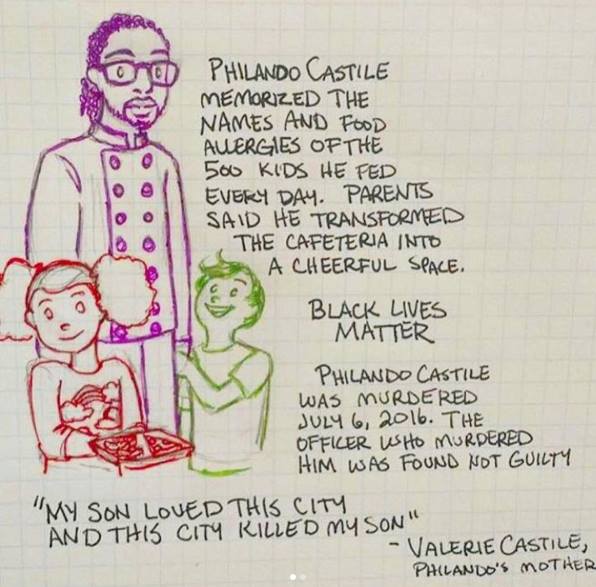 PHILANDO CASTILE
MEMORIZED THE
NAMES AND FOOD
ALLERGIES OF THE
500 KIDS HE FED
EVERY DAY. PARENTS
SAID HE TRANSFORMED
THE CAFETERIA INTO
A CHEERFUL SPACE.
BLACK LIVES
MATTER
PHILANDO CASTILE
WAS MURDERED
JULY 6, 2016. THE
OFFICER WHO MURDERED
HIM WAS FOUND NOT GUILTY
"MY SON LOVED THIS CITY
AND THIS CITY KILLED MY SON"
- VALERIE CASTILE,
PHILANDO'S MOTHER